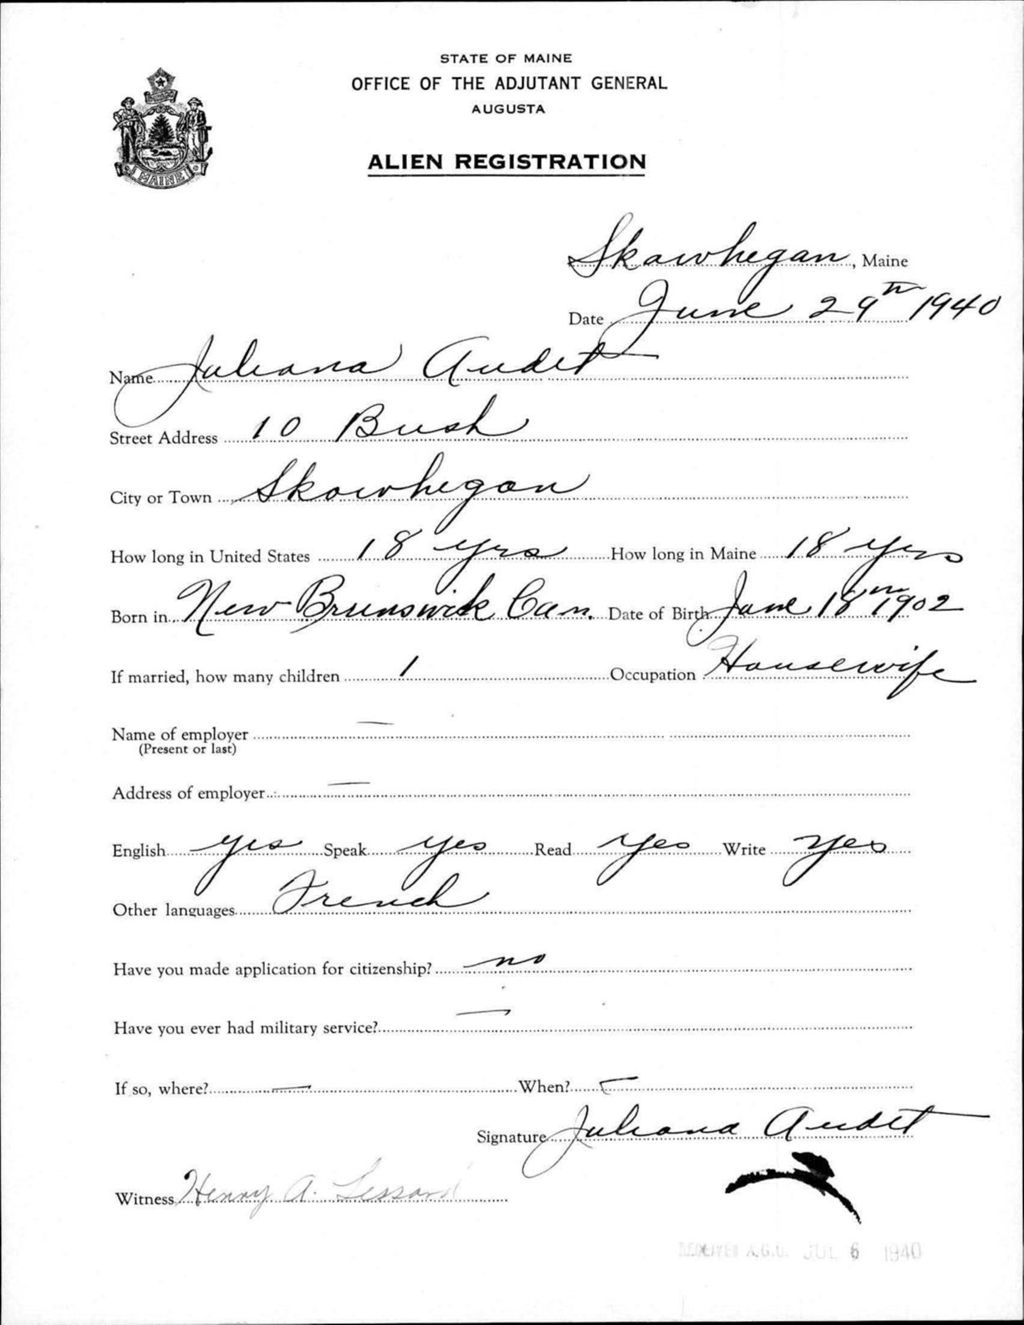 STATE OF MAINE
OFFICE OF THE ADJUTANT GENERAL
AUGUSTA
MAINE
ALIEN REGISTRATION
Skowhegan, Maine
Date June 29th 1940
Name Juliana Audet
Street Address 10 Bush
City or Town Skowhegan
How long in United States 18 yrs How long in Maine 18 yrs
Born in New Brunswick Can. Date of Birth June 18th 1902
If married, how many children 1 Occupation Housewife
Name of employer —
(Present or last)
Address of employer —
English yes Speak yes Read yes Write yes
Other languages French
Have you made application for citizenship? no
Have you ever had military service? —
If so, where? — When? —
Signature Juliana Audet
Witness Henry A. Lessard
RECEIVED A.G.O. JUL 6 1940